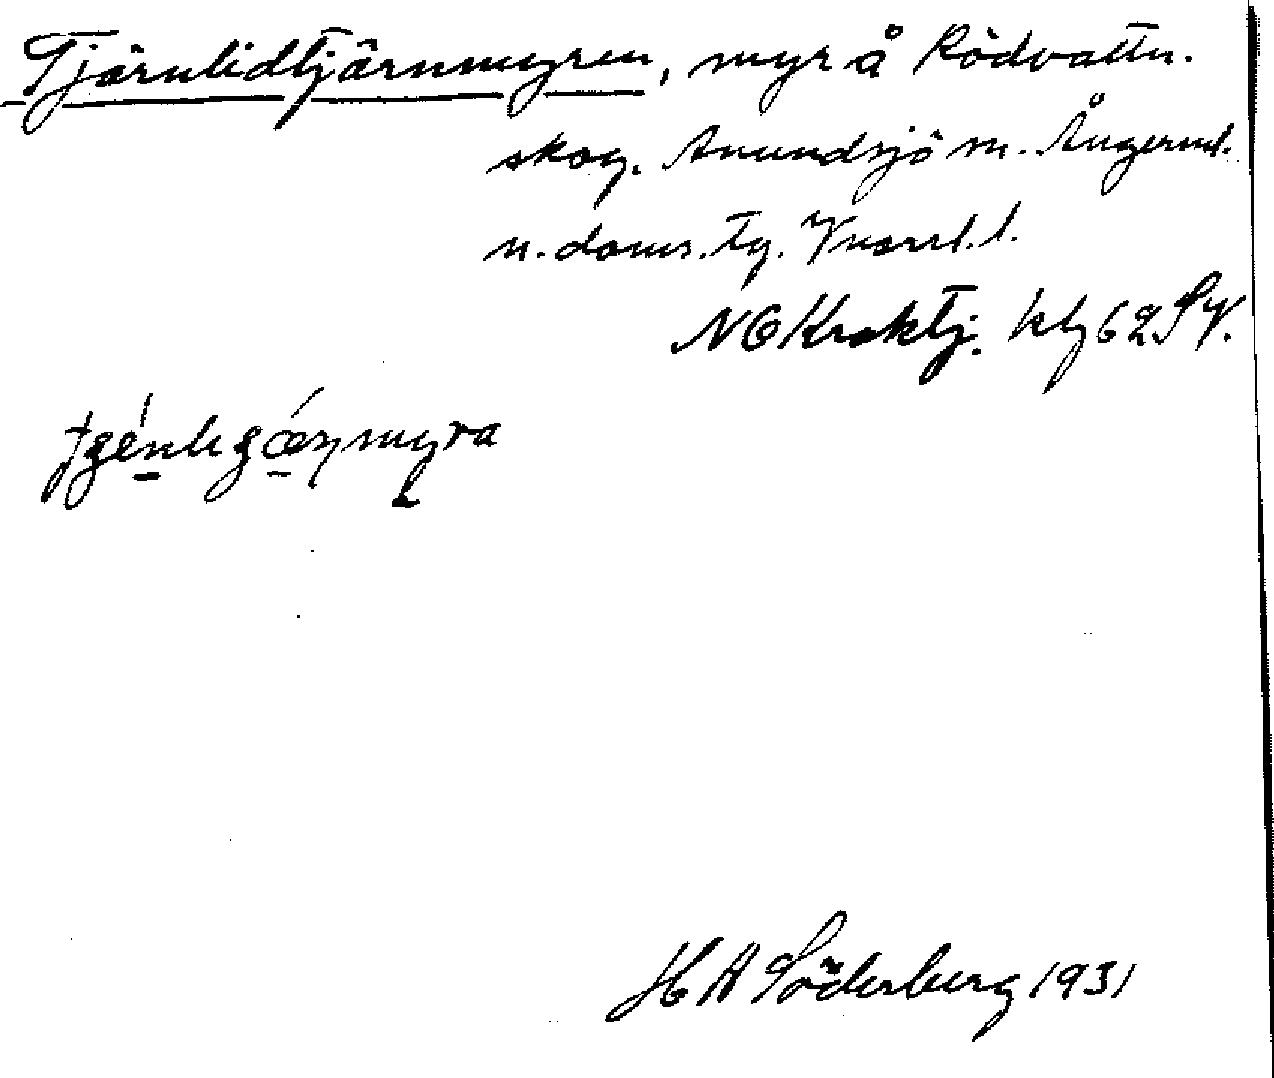 Tjärnlidtjärnmyren, myr å Rödvattn.
skog. Anundsjö sn. Ångerml.
n. doms. tg. Vnorrl. l.
NO Kroktj. kbl 62 SV.
myra
H A Söderberg 1931